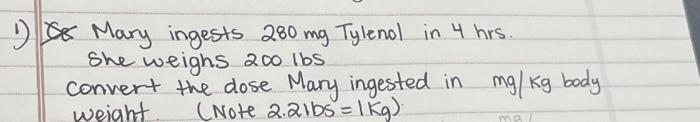 1) Mary ingests 280 mg Tylenol in 4 hrs.
She weighs 200 lbs
convert the dose Mary ingested in mg/kg body
weight. (Note 2.2lbs = 1Kg)